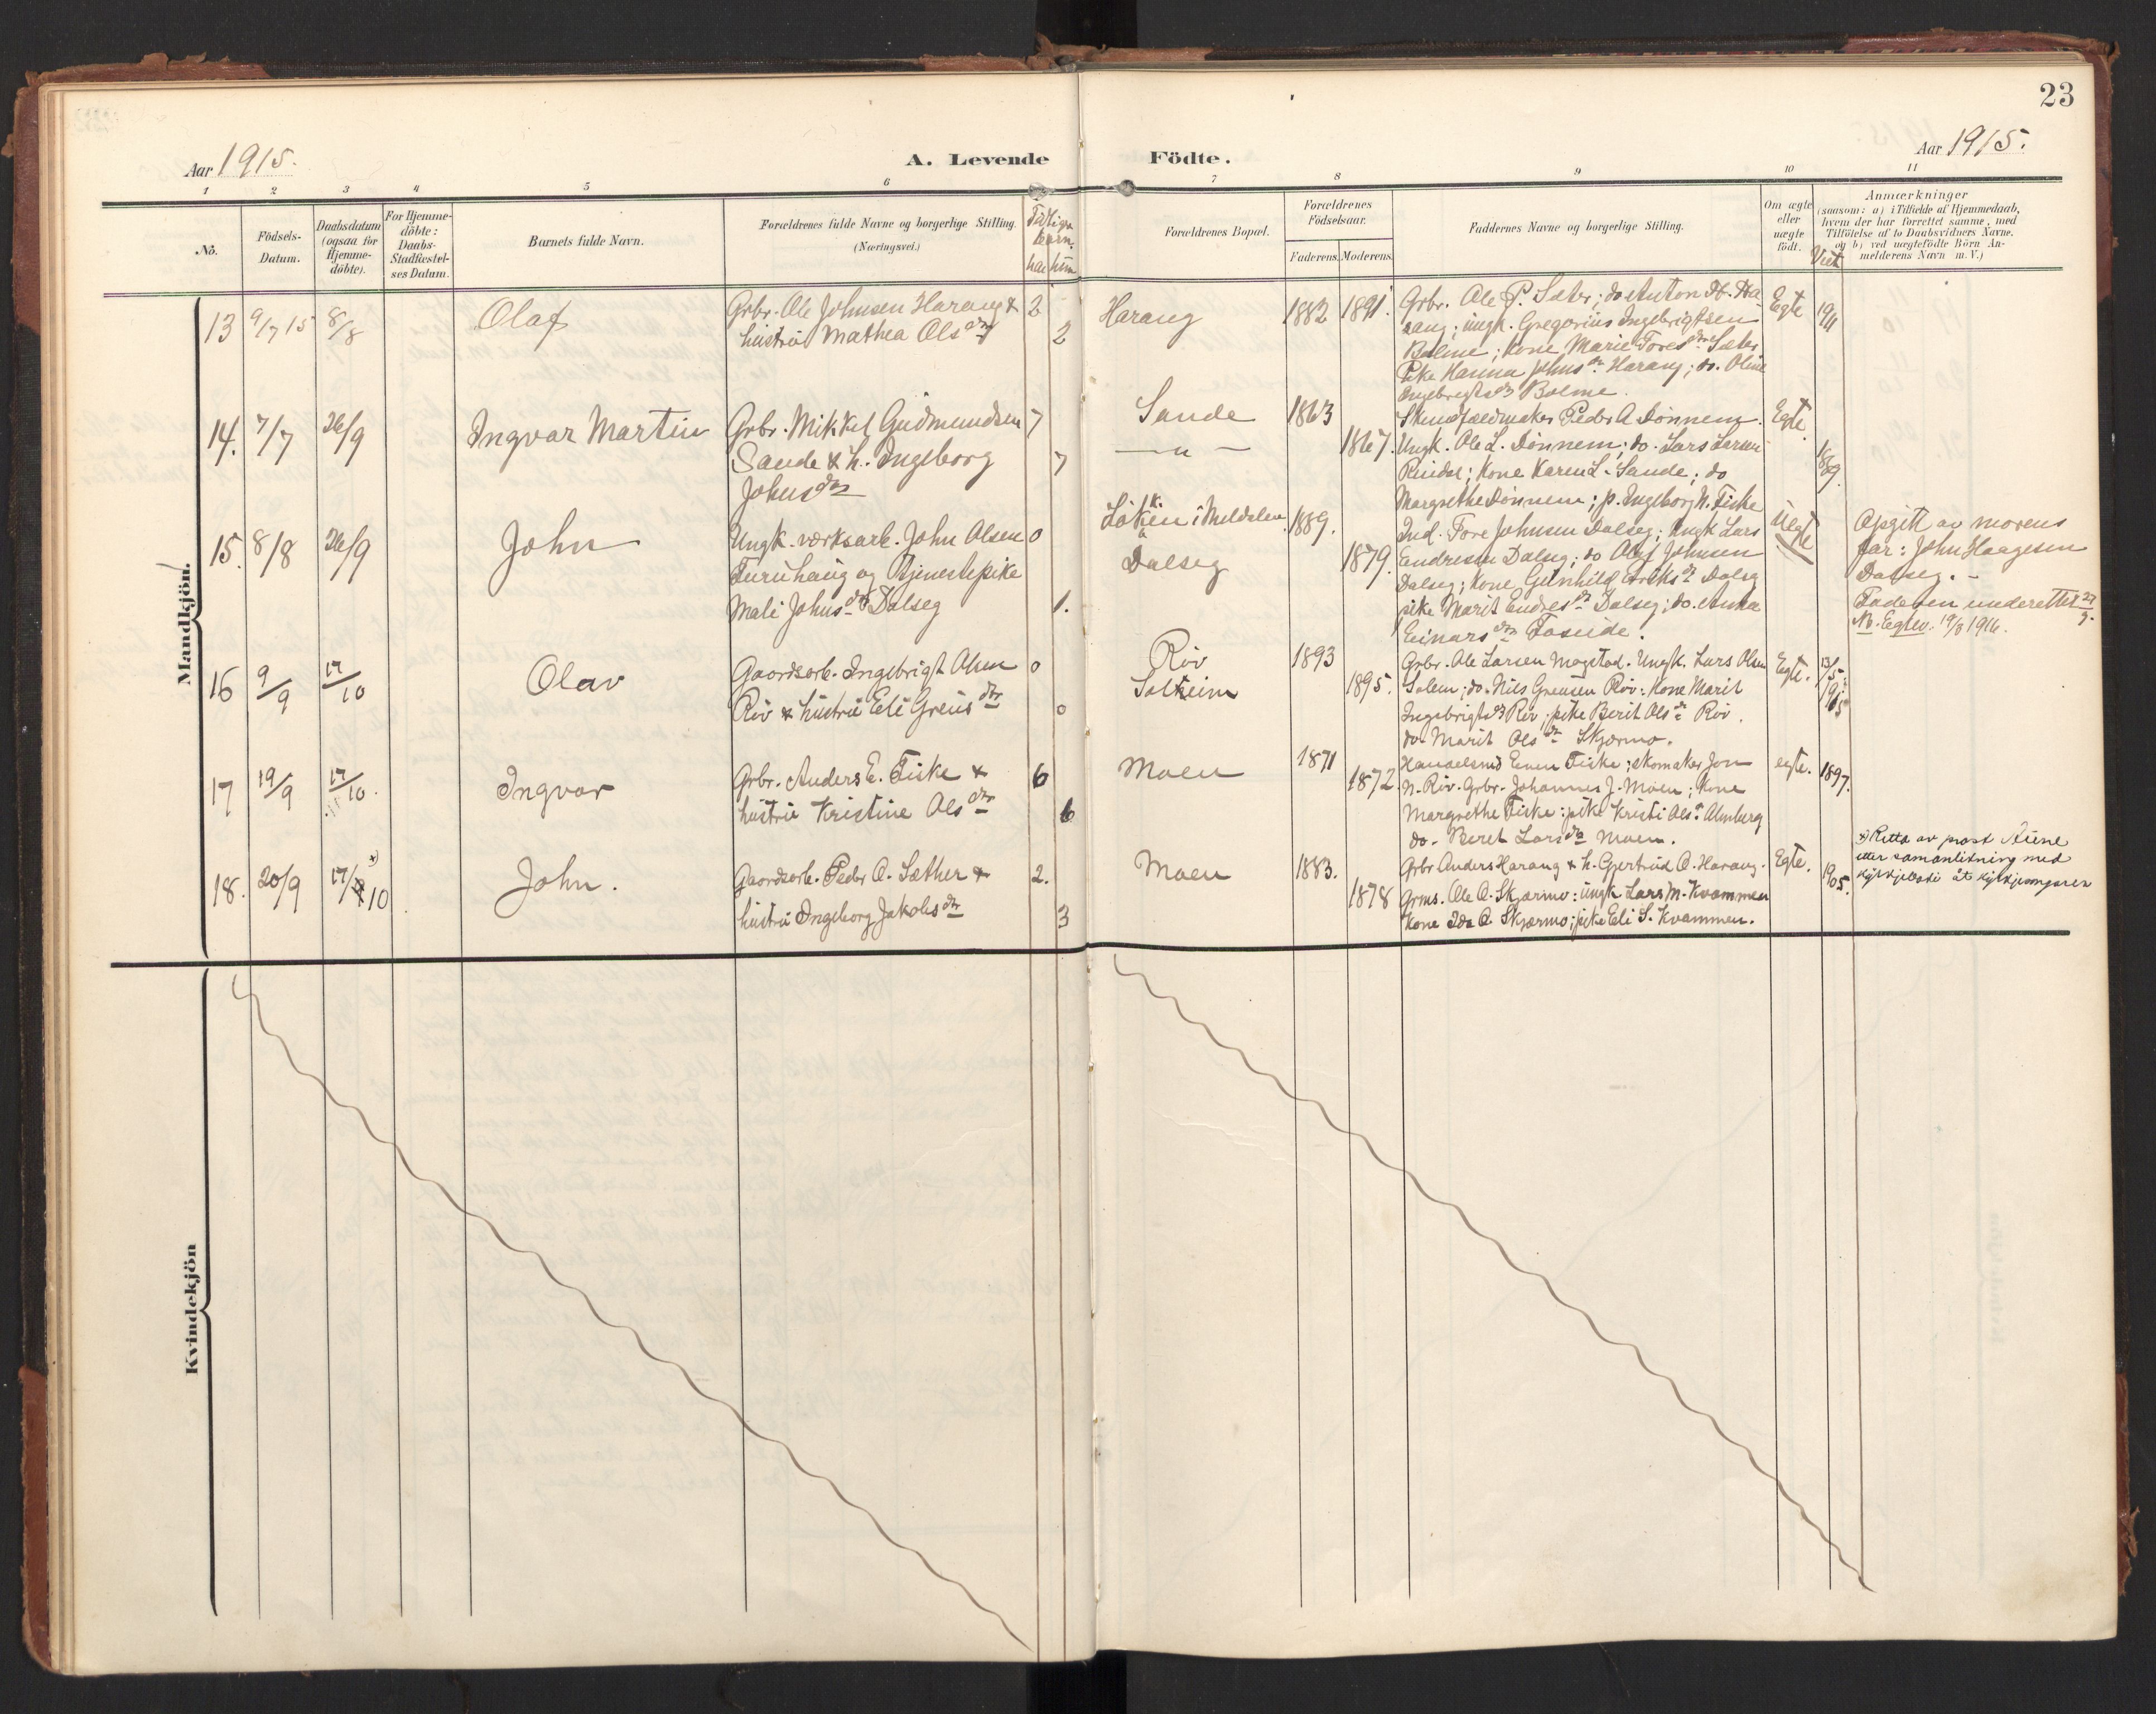 23
Aar 1915.
A. Levende Födte.
Aar 1915.
1 2 3 4 5 6 7 8 9 10 11
No.
Födsels-
Datum.
Daabsdatum
(ogsaa for
Hjemme-
döbte).
For Hjemme-
döbte:
Daabs-
Stadfæstel-
ses Datum.
Barnets fulde Navn.
Forældrenes fulde Navne og borgerlige Stilling.
(Næringsvei.)
Tidligere
barn.
han hun
Forældrenes Bopæl.
Forældrenes
Födselsaar.
Faderens. Moderens.
Faddernes Navne og borgerlige Stilling.
Om ægte
eller
uægte
födt.
Viet
Anmærkninger
(saasom: a) i Tilfælde af Hjemmedaab,
hvem der har forrettet samme, med
Tilföielse af to Daabsvidners Navne,
og b) ved uægtefödte Börn An-
melderens Navn m. V.)
Mandkjön.
13 9/7 15 8/8 Olaf
Grbr. Ole Johnsen Harang & 2
hustru Mathea Olsdtr 2
Harang 1882 1891.
Grbr. Ole P. Sæter; do Anton Ha-
rang; ungk. Gregorius Ingebrigtsen
Bolme; kone Marie Toresdtr Sæter
Pike Hanna Johnsdtr Harang; do. Oline
Ingebrigtsdtr Bolme.
Egte 1911
14. 7/7 26/9 Ingvar Martin
Grbr. Mikkel Gudmundsen 7
Sande & h. Ingeborg 7
Johnsdtr
Sande 1863
— " — 1867.
Skindfældmaker Peder A Dönnem.
Ungk. Ole L. Dönnem; do. Lars Larsen
Rindal; kone Karen L. Sande; do
Margrethe Dönnem; p. Ingeborg N. Fiske
Egte. 1889.
15. 8/8 26/9 John
Ungk. værksarb. John Olsen 0
Furuhaug og tjenestepike
Mali Johnsdtr Dalseg 1.
Lökken i Meldalen 1889.
Dalseg 1879.
Ind. Tore Johnsen Dalseg; Ungk Lars
Endresen Dalseg; do Olaf Johnsen
Dalseg; kone Gunhild Eriksdtr Dalseg
pike Marit Endresdtr Dalseg; do. Anna
Einarsdtr Foseide.
Uegte
Opgitt av morens
far: John Haagesen
Dalseg. -
Faderen underettet 27/9.
Nb. Egtev. 19/3 1916.
16 9/9 17/10 Olav
Gaardsarb. Ingebrigt Olsen 0
Röv & hustru Eli Greiisdtr 0
Röv 1893
Solheim 1895.
Grbr. Ole Larsen Mogstad. Ungk. Lars Olsen
Solem; do. Nils Greiisen Röv: Kone Marit
Ingebrigtsdtr Röv; pike Berit Olsdtr Röv.
do. Marit Olsdtr Skjærmo.
Egte. 13/5 1915
17 19/9 17/10. Ingvar
Grbr. Anders E. Fiske & 6
hustru Kristine Olsdtr 6
Moen 1871
1872.
Handelsmd Einar Fiske; skomaker Jon
N. Röv. Grbr. Johannes J. Moen; Kone
Margrethe Fiske: pike Kristi Olsdtr Almberg
do. Beret Larsdtr Moen.
egte. 1897.
18. 20/9 17/10 x) John.
Gaardsarb. Peder O. Sæther & 2.
hustru Ingeborg Jakobsdtr 3
Moen 1883.
1878
Grbr Anders Harang & h. Gjertrud O. Harang.
Grms. Ole O. Skjærmo: ungk Lars M. Kvammen
Kone Ida O. Skjærmo; pike Eli S. Kvammen.
Egte. 1905.
x) Retta av prost Aune
etter samanlikning med
kyrkjeboki åt kyrkjesongaren
Kvindekjön